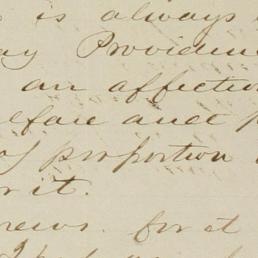 is always
Providen
an affectio
elfare and
of proportion
r it.
news. for at